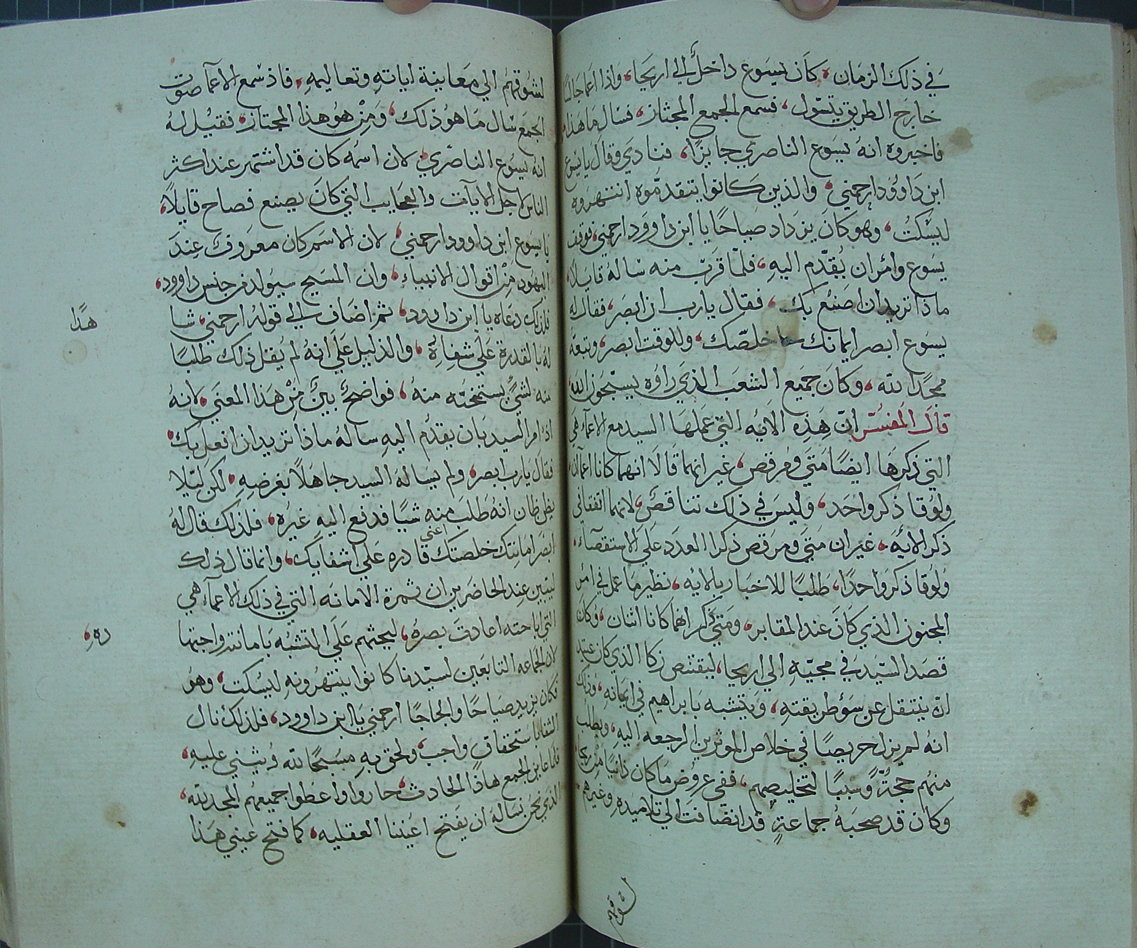 في ذلك الزمان، كان يسوع داخلً الي اريحا، واذا اعما جالسًا
خارج الطريق يتسول، فسمع الجمع المجتاز، فسال ما هذا،
فاخبروه انه يسوع الناصري جايزًا، فنادي وقال يا يسوع
ابن داوود ارحمني، والذين كانوا يتقدموه انتهروه
ليسكت، وهو كان يزداد صياحًا يا ابن داوود ارحمني، فوقف
يسوع وامر ان يقدم اليه، فلما قرب منه ساله قايلاً،
ماذا تريد ان اصنع بك، فقال يارب ان ابصر، فقال له
يسوع ابصر ايمانك خلصك، وللوقت ابصر، وتبعه
ممجدًا لله، وكان جميع الشعب الذي راوه يسبحون الله
قال المفسر ان هذه الايه التي عملها السيد مع الاعما هي
التي ذكرها ايضًا متي ومرقص، غير انهما قالا انهما كانا اعمان
ولوقا ذكر واحد، وليس في ذلك تناقض، لانهما اتفقا في
ذكر الايه، غير ان متي ومرقص ذكرا العدد علي الاستقصآء،
ولوقا ذكر واحدًا، طلبًا للاخبار بالايه، نظير ما عمل في امر
المجنون الذي كان عند المقابر، ومتي ذكر انهما كانا اثنان، وكان
قصد السيد في مجيه الي اريحا، ليقتنص زكا الذي كان عتيد
ان ينتقل عن سؤ طريقته، ويتشبه بابراهيم في ايمانه، وذلك
انه لم يزل حريصًا في خلاص الموثرين الرجعه اليه، ويطلب
منهم حجةً وسببًا لتخليصهم، ففي عروض ما كان ذاهبًا من اريحا
وكان قد صحبه جماعةٍ قد انضافت الي تلاميذه وغيرهم،
لشوقهم
لشوقهم الي معاينة اياته وتعاليمه، فاذ سمع الاعما صوت
الجمع سال ما هو ذلك، ومن هو هذا المجتاز، فقيل له
انه يسوع الناصري، لان اسمه كان قد اشتهر عند اكثر
الناس لاجل الايات والعجايب التي كان يصنع فصاح قايلاً،
يا يسوع ابن داوود ارحمني، لان الاسم كان معروف عند
اليهود من اقوال الانبياء، وان المسيح سيولد من جنس داوود،
فلذلك دعاه يا ابن داوود، ثم اضاف الي قوله ارحمني،
له القدرة علي شفاه، والدليل علي انه لم يقل ذلك طلبًا
منه لشيً يستنحه منه، فواضح بيّن من هذا المعني، لانه
اذ امر السيد بان يقدم اليه ساله ماذا تريد ان افعل بك،
فقال يارب ابصر، ولم يساله السيد جاهلاً بغرضه، لكن ليلا
يظن ظان انه طلب منه شيا فدفع اليه غيره، فلذلك قال له
ابصر امانتك خلصتك اعني قادره علي اشفايك، وانما قال ذلك
ليبين عند الحاضرين ان ثمرة الامانه التي في ذلك الاعمآ هي
التي اعادت بصره، ليحثهم علي التشبه بامانته واجبها
لان الجماعه التابعين لسيدنا كانوا ينتهرونه ليسكت، وهو
فكان يزيد صياحًا والحاحًا ارحمني يا ابن داوود، فلذلك نال
الشفا باستحقاق واجب، ولحق به مسبحًا لله ويثني عليه،
فلما عاين الجمع هذا الحادث، حاروا واعطوا جميعهم المجد لله،
الذي نحن نساله ان يفتح اعيننا العقليه، كما فتح عيني هذا
هذا